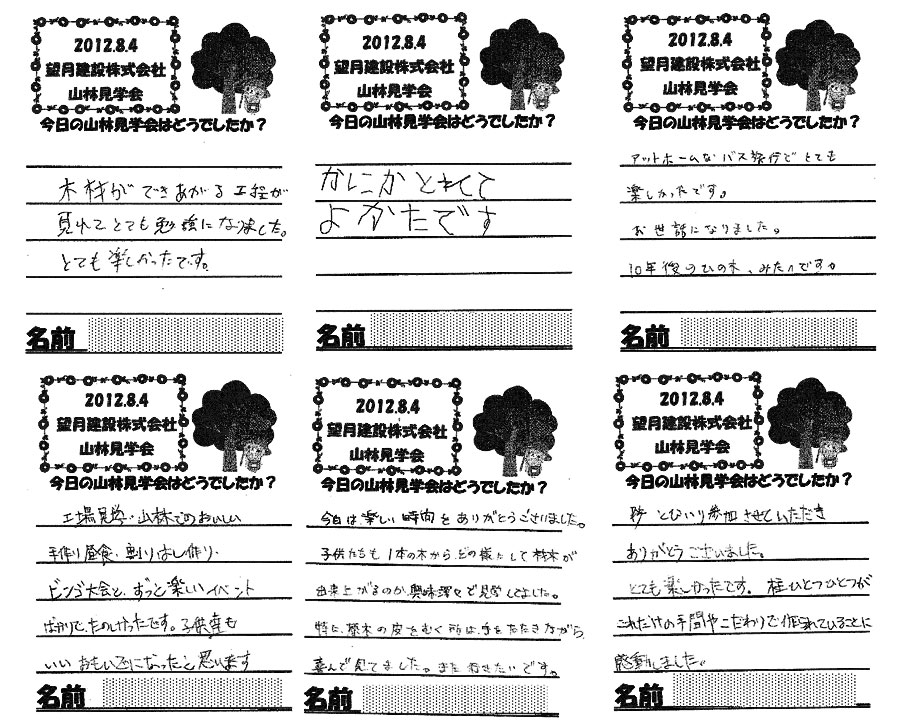 2012.8.4
望月建設株式会社
山林見学会
今日の山林見学会はどうでしたか？
木材ができあがる工程が
見れてとても勉強になりました。
とても楽しかったです。
名前
2012.8.4
望月建設株式会社
山林見学会
今日の山林見学会はどうでしたか？
かにかとれてて
よかたです
名前
2012.8.4
望月建設株式会社
山林見学会
今日の山林見学会はどうでしたか？
アットホームなバス旅行でとても
楽しかったです。
お世話になりました。
10年後のひの木、みたいですね
名前
2012.8.4
望月建設株式会社
山林見学会
今日の山林見学会はどうでしたか？
工場見学・山林でのおいしい
手作り昼食・割りばし作り・
ビンゴ大会と、ずっと楽しいイベント
ばかりで、たのしかったです。子供達も
いいおもいでになったと思います
名前
2012.8.4
望月建設株式会社
山林見学会
今日の山林見学会はどうでしたか？
今日は楽しい時間をありがとうございました。
子供たちも1本の木から、どの様にして材木が
出来上がるのか、興味深々で見学してました。
特に、原木の皮をむく所は、手をたたきながら
喜んで見てました。また行きたいです。
名前
2012.8.4
望月建設株式会社
山林見学会
今日の山林見学会はどうでしたか？
とびいり参加させていただき
ありがとうございました。
とても楽しかったです。柱ひとつひとつが
これだけの手間やこだわりで作られていることに
感動しました。
名前